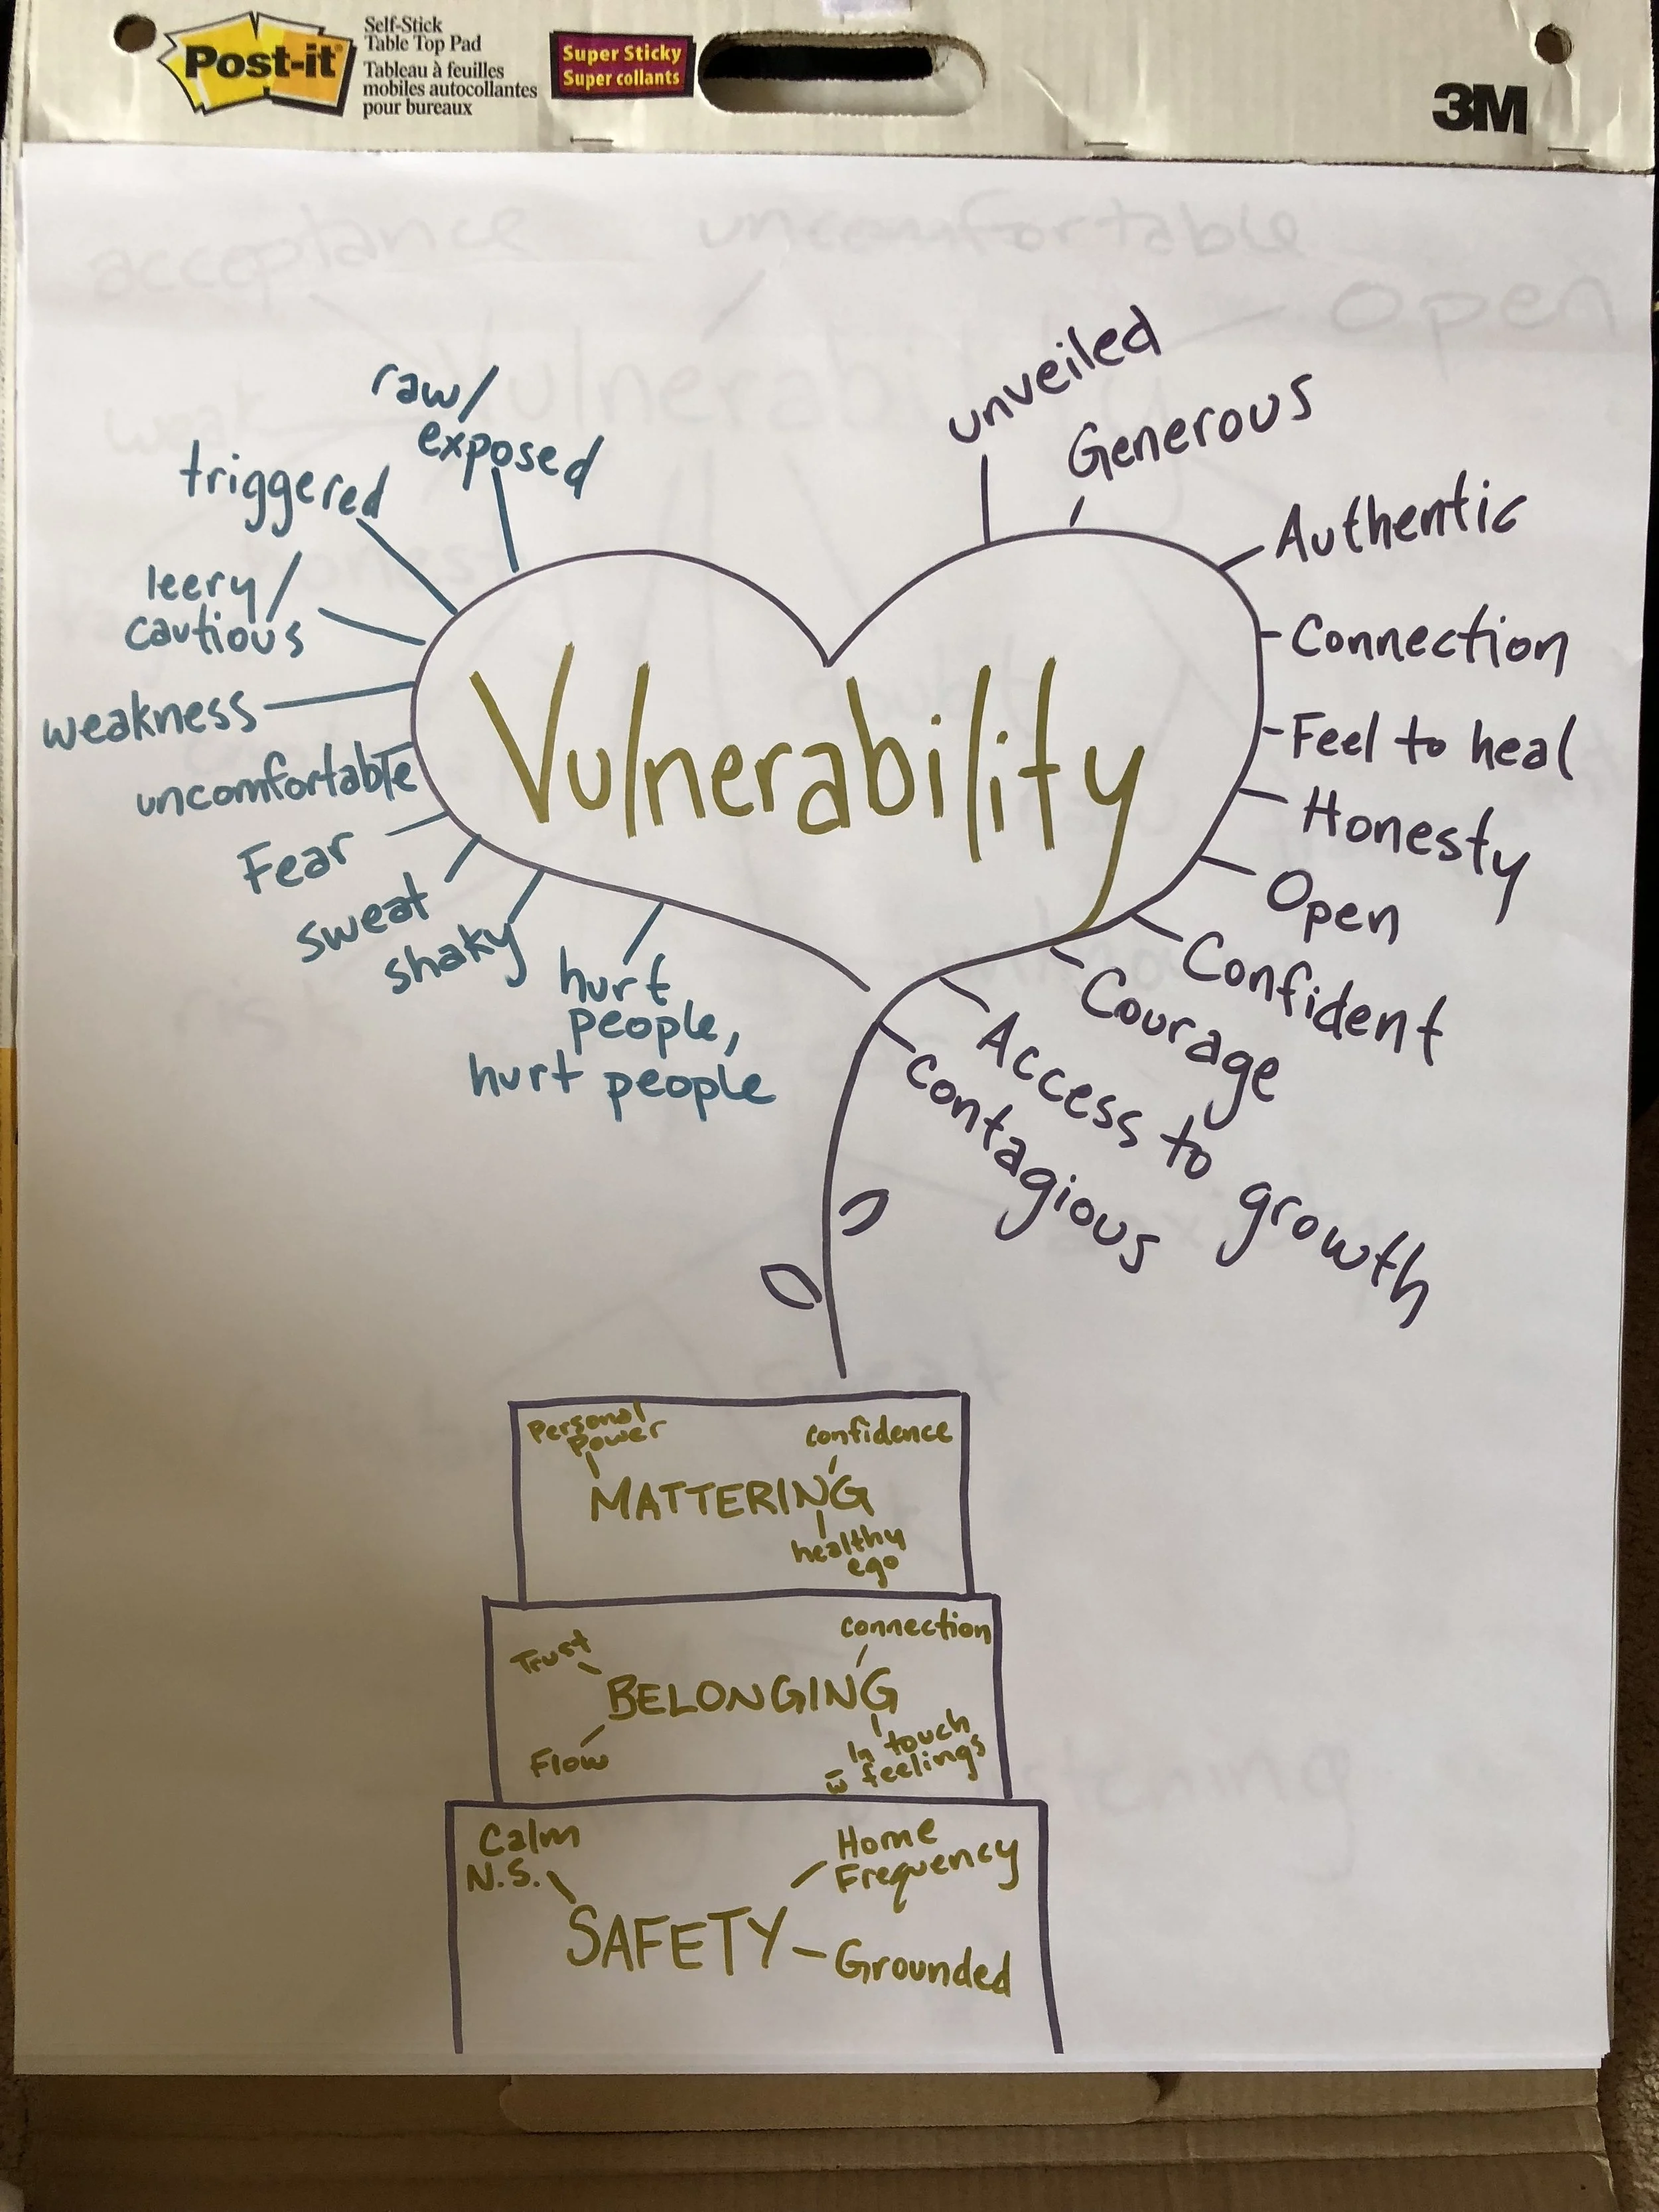 Post-it
Self-Stick
Table Top Pad
Tableau à feuilles
mobiles autocollantes
pour bureaux
Super Sticky
Super collants
3M
acceptance
uncomfortable
open
Vulnerability
raw/
exposed
triggered
leery/
cautious
weakness
uncomfortable
Fear
sweat
shaky
hurt
people,
hurt people
Vulnerability
unveiled
Generous
Authentic
Connection
Feel to heal
Honesty
Open
Confident
Courage
Access to growth
contagious
Personal
Power
confidence
MATTERING
healthy
ego
Trust
connection
BELONGING
Flow
In touch
w̄ feelings
Calm
N.S.
Home
Frequency
SAFETY
Grounded